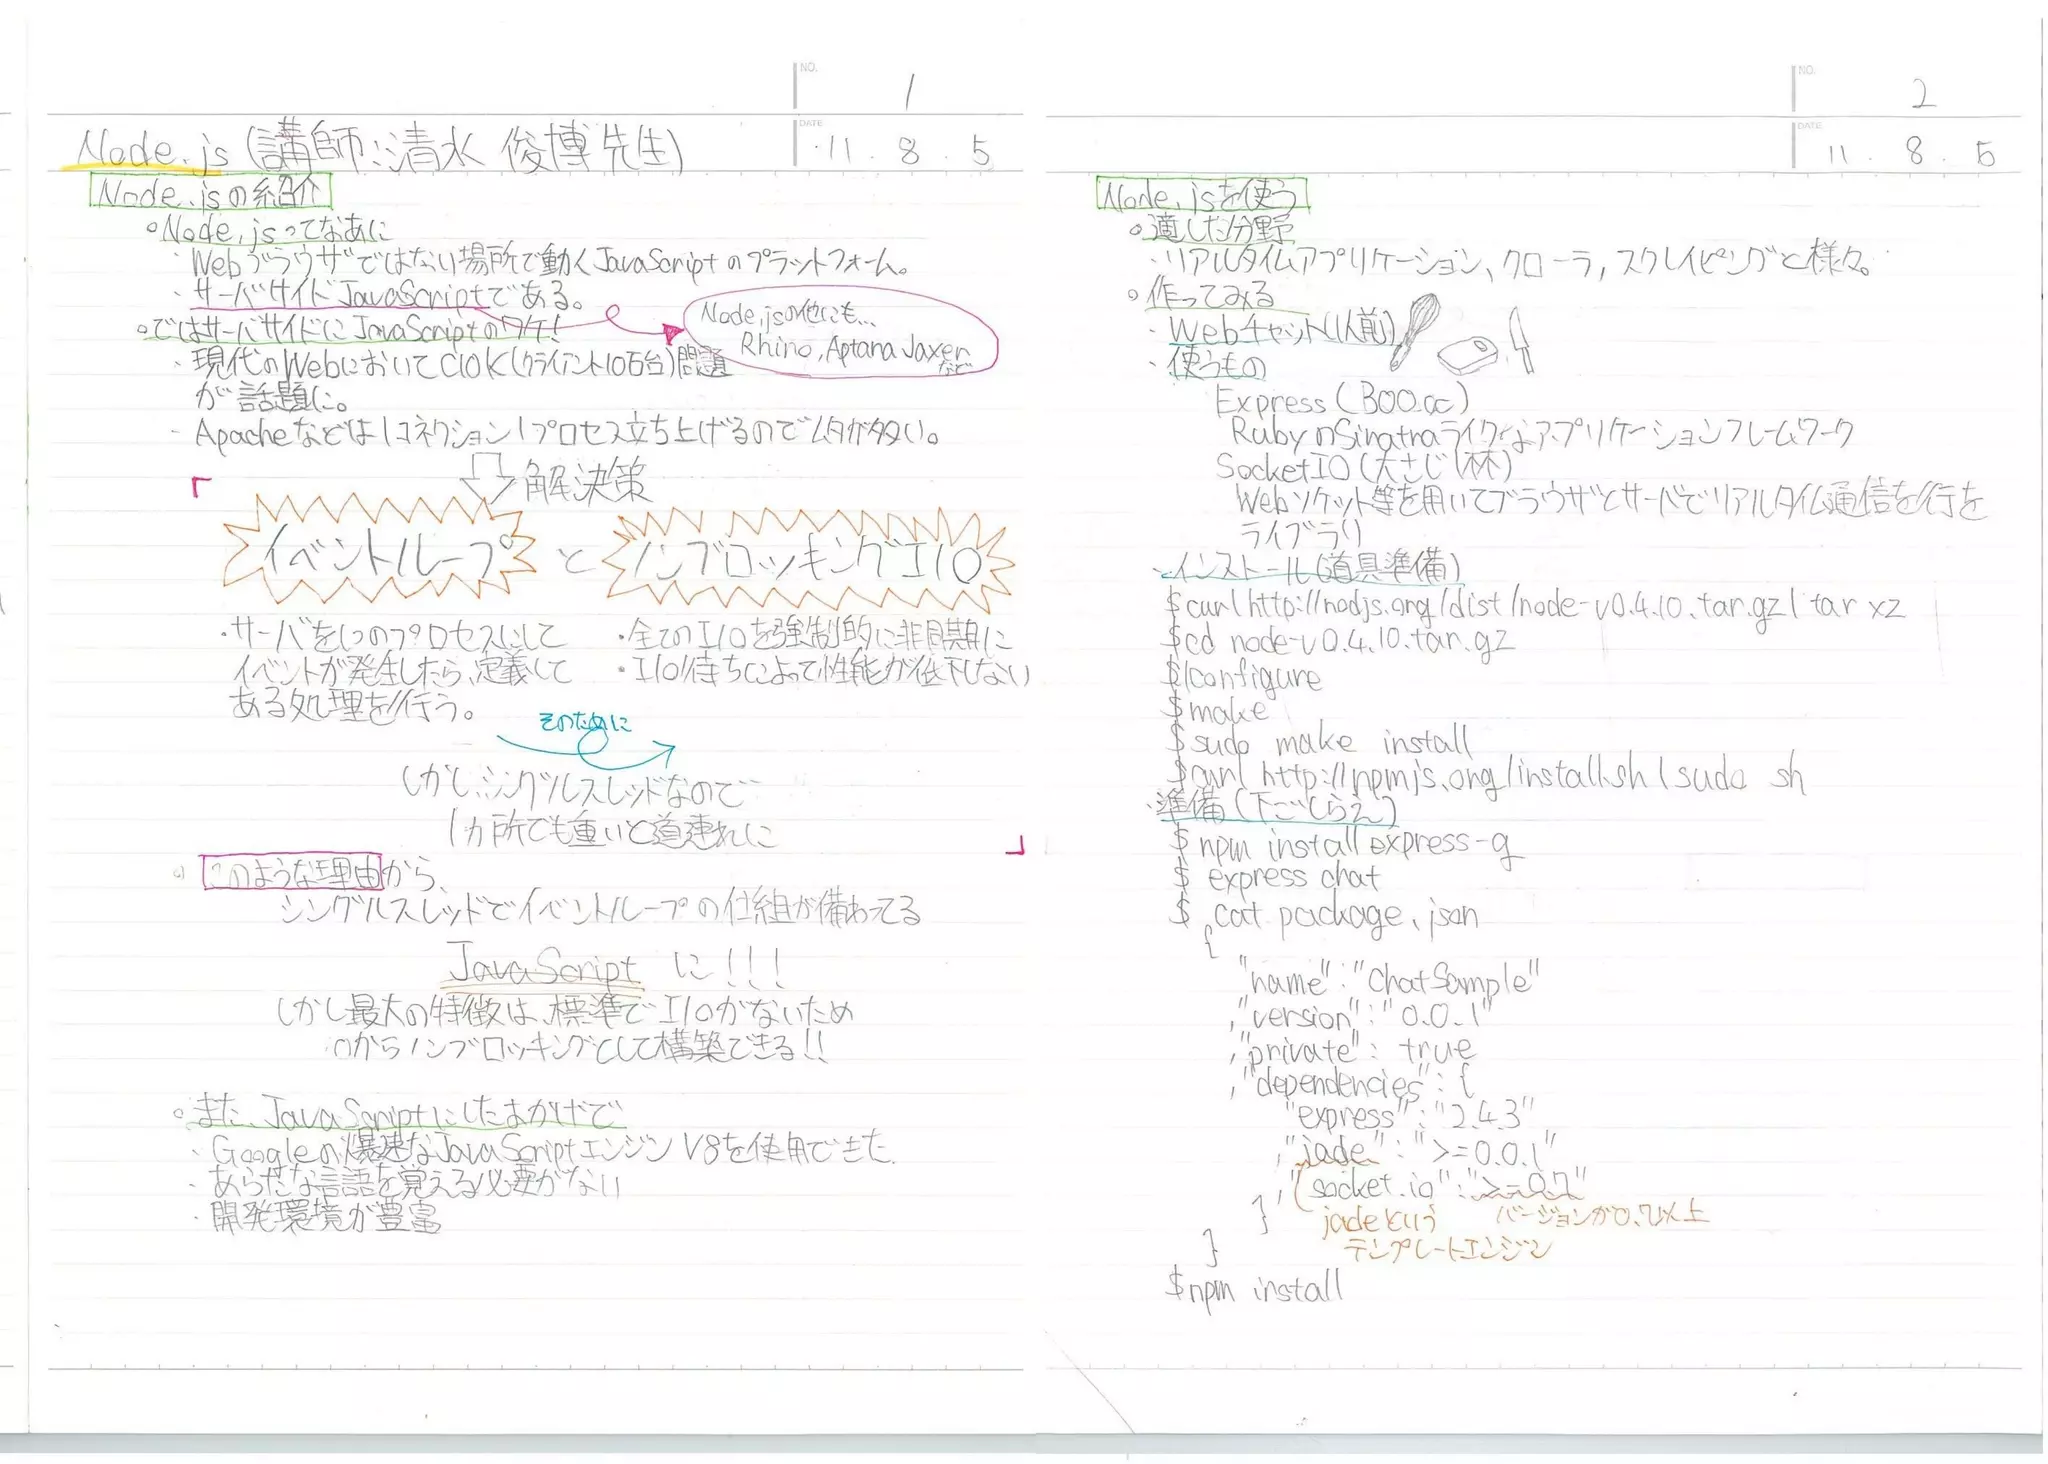 NO.
1
DATE
11 . 8 . 5
Node.js (講師:清水 俊博先生)
Node.jsの紹介
Node.jsってなあに
・Webブラウザではない場所で動くJavaScriptのプラットフォーム。
・サーバサイドJavaScriptである。
Node.jsの他にも…
Rhino, Aptana Jaxer
など
ではサーバサイドにJavaScriptのワケ!
・現代のWebにおいてC10K(クライアント10万台)問題
が話題に。
・Apacheなどは1コネクション1プロセス立ち上げるのでムダが多い。
解決策
「
イベントループ と ノンブロッキングI/O
・サーバを1つのプロセスにして
イベントが発生したら、定義して
ある処理を行う。
・全てのI/Oを強制的に非同期に
・I/O待ちによって性能が低下しない
そのために
しかし、シングルスレッドなので…
1カ所でも重いと道連れに
」
このような理由から、
シングルスレッドでイベントループの仕組が備わってる
JavaScript に!!!
しかし最大の特徴は、標準でI/Oがないため
0からノンブロッキングとして構築できる!!
また、JavaScriptにしたおかげで
・Googleの爆速なJavaScriptエンジンV8を使用できた.
・あらたな言語を覚える必要がない
・開発環境が豊富
NO.
2
DATE
11 . 8 . 5
Node.jsを使う
適した分野
・リアルタイムアプリケーション、クローラ,スクレイピングと様々。
作ってみる
・Webチャット(1人前)
・使うもの
Express(300cc)
RubyのSinatraライクなアプリケーションフレームワーク
SocketIO(大さじ1杯)
Webソケット等を用いてブラウザとサーバでリアルタイム通信を行を
ライブラリ
・インストール(道具準備)
$curl http://nodjs.org/dist/node-v0.4.10.tar.gz | tar xz
$cd node-v0.4.10.tar.gz
$/configure
$make
$sudo make install
$curl http://npmjs.org/install.sh | sudo sh
・準備(下ごしらえ)
$ npm install express-g
$ express chat
$ cat package.json
{
"name":"ChatSample"
,"version":"0.0.1"
,"private": true
,"dependencies":{
"express":"2.4.3"
,"jade":">=0.0.1"
,"socket.io":">=0.7"
}
jadeという
テンプレートエンジン
バージョンが0.7以上
}
$npm install